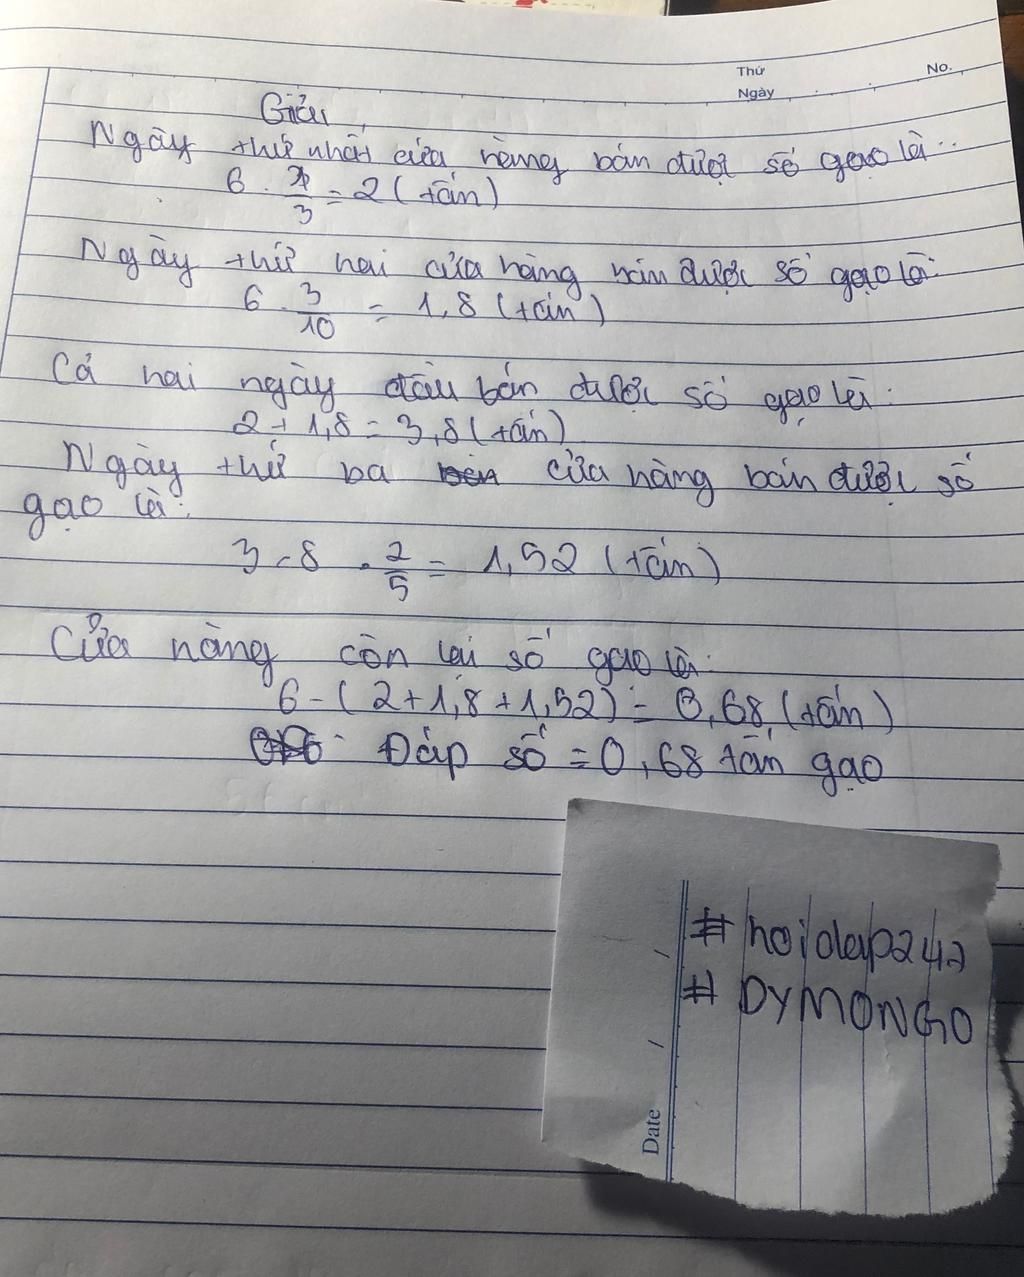 Thứ
No.
Ngày
Giải
Ngày thứ nhất cửa hàng bán được số gạo là:
6 . 1/3 = 2 (tấn)
Ngày thứ hai cửa hàng bán được số gạo là:
6 . 3/10 = 1,8 (tấn)
Cả hai ngày đầu bán được số gạo là:
2 + 1,8 = 3,8 (tấn)
Ngày thứ ba cửa hàng bán được số
gạo là:
3,8 . 2/5 = 1,52 (tấn)
Cửa hàng còn lại số gạo là:
6 - (2 + 1,8 + 1,52) = 0,68 (tấn)
Đáp số = 0,68 tấn gạo
# hoidap247
# DYMONGO
Date